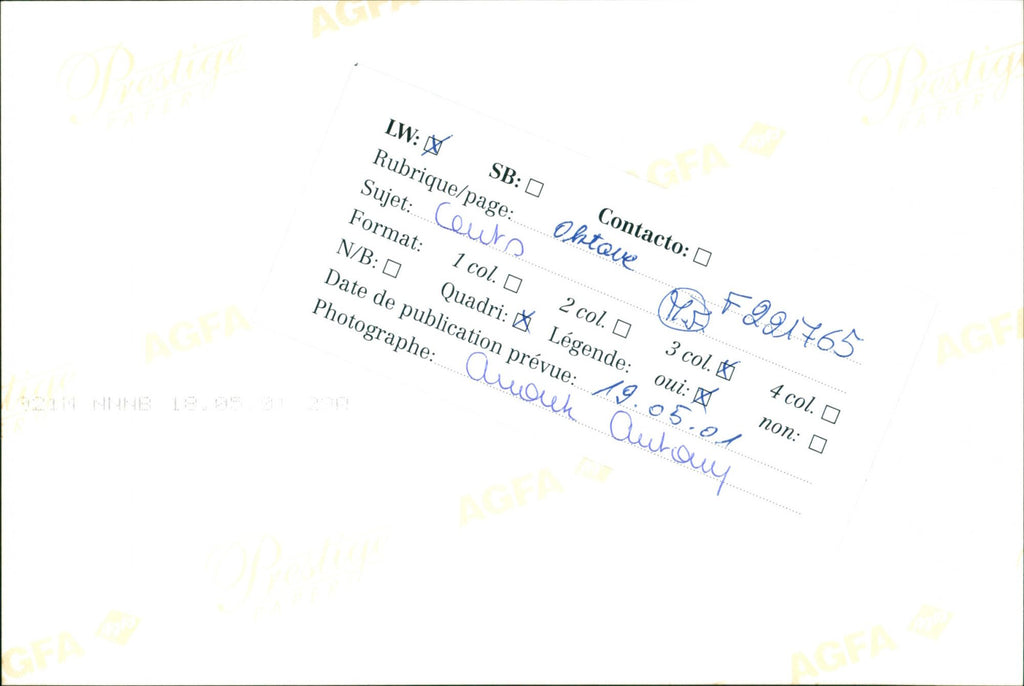 AGFA
Prestige
PAPER
Prestige
PAPER
AGFA
LW: ☒ SB: ☐ Contacto: ☐
Rubrique/page: Oktave
Sujet: Conts F221765
Format: 1 col. ☐ 2 col. ☐ 3 col. ☒ 4 col. ☐
N/B: ☐ Quadri: ☒ Légende: oui: ☒ non: ☐
Date de publication prévue: 19.05.01
Photographe: Anouk Antony
AGFA
AGFA
18.05.01
AGFA
Prestige
PAPER
AGFA
AGFA